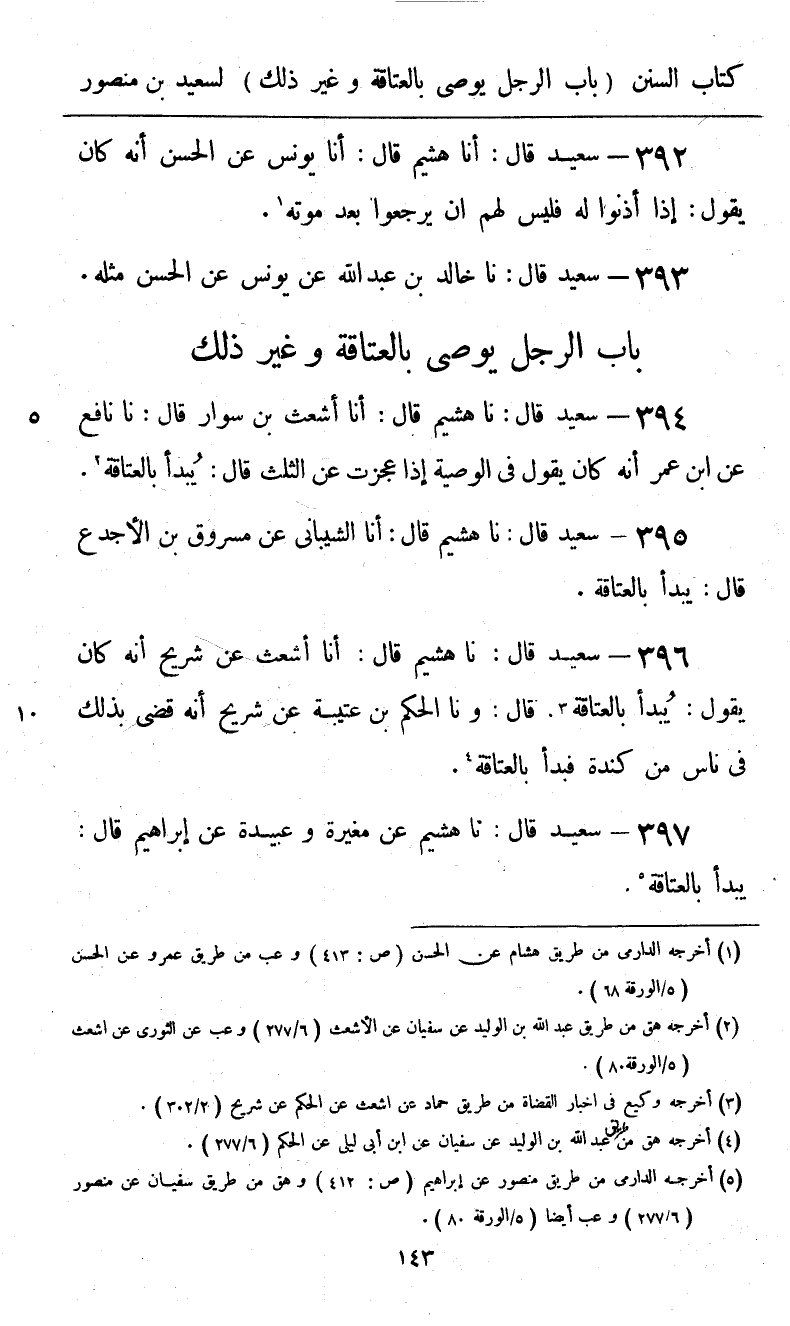 كتاب السنن ( باب الرجل يوصى بالعتاقة و غير ذلك ) لسعيد بن منصور
٣٩٢ – سعيد قال : أنا هشيم قال : أنا يونس عن الحسن أنه كان
يقول : إذا أذنوا له فليس لهم ان يرجعوا بعد موته١ .
٣٩٣ – سعيد قال : نا خالد بن عبد الله عن يونس عن الحسن مثله .
باب الرجل يوصى بالعتاقة و غير ذلك
٣٩٤ – سعيد قال : نا هشيم قال : أنا أشعث بن سوار قال : نا نافع ٥
عن ابن عمر أنه كان يقول فى الوصية إذا عجزت عن الثلث قال : يُبدأ بالعتاقة٢ .
٣٩٥ – سعيد قال : نا هشيم قال : أنا الشيبانى عن مسروق بن الأجدع
قال : يبدأ بالعتاقة .
٣٩٦ – سعيد قال : نا هشيم قال : أنا أشعث عن شريح أنه كان
يقول : يُبدأ بالعتاقة٣ . قال : و نا الحكم بن عتيبة عن شريح أنه قضى بذلك ١٠
فى ناس من كندة فبدأ بالعتاقة٤ .
٣٩٧ – سعيد قال : نا هشيم عن مغيرة و عبيدة عن إبراهيم قال :
يبدأ بالعتاقة٥ .
(١) أخرجه الدارمى من طريق هشام عن الحسن ( ص : ٤١٣ ) و عب من طريق عمرو عن الحسن
( ٥/الورقة ٦٨ ) .
(٢) أخرجه هق من طريق عبد الله بن الوليد عن سفيان عن الأشعث ( ٢٧٧/٦ ) و عب عن الثورى عن اشعث
( ٥/الورقة ٨٠ ) .
(٣) أخرجه وكيع فى اخبار القضاة من طريق حماد عن اشعث عن الحكم عن شريح ( ٣٠٢/٢ ) .
(٤) أخرجه هق من طريق عبد الله بن الوليد عن سفيان عن ابن أبى ليلى عن الحكم ( ٢٧٧/٦ ) .
(٥) أخرجه الدارمى من طريق منصور عن إبراهيم ( ص : ٤١٢ ) و هق من طريق سفيان عن منصور
( ٢٧٧/٦ ) و عب أيضا ( ٥/الورقة ٨٠ ) .
١٤٣